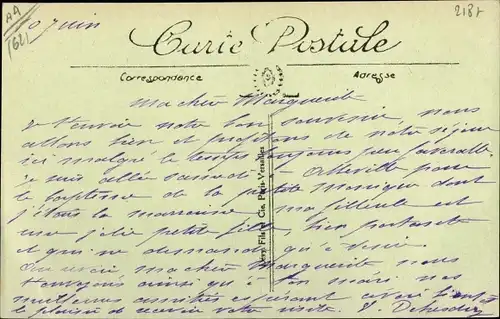 AA
(62)
7 Juin
2187
Carte Postale
Correspondance
Adresse
Ma chère Marguerite
t'envoie notre bon souvenir, nous
allons bien et profitons de notre séjour
ici malgré le temps toujours peu favorable
je suis allée samedi à pour
le baptême de la petite Monique dont
j'étais la marraine, ma filleule est
une jolie petite fille, bien portante
et qui ne demande qu'à vivre.
Au revoir, ma chère Marguerite nous
t'envoyons ainsi qu'à ton mari nos
meilleures amitiés espérant avoir bientôt
le plaisir de recevoir votre visite.
Fils et Cie, Paris-Versailles